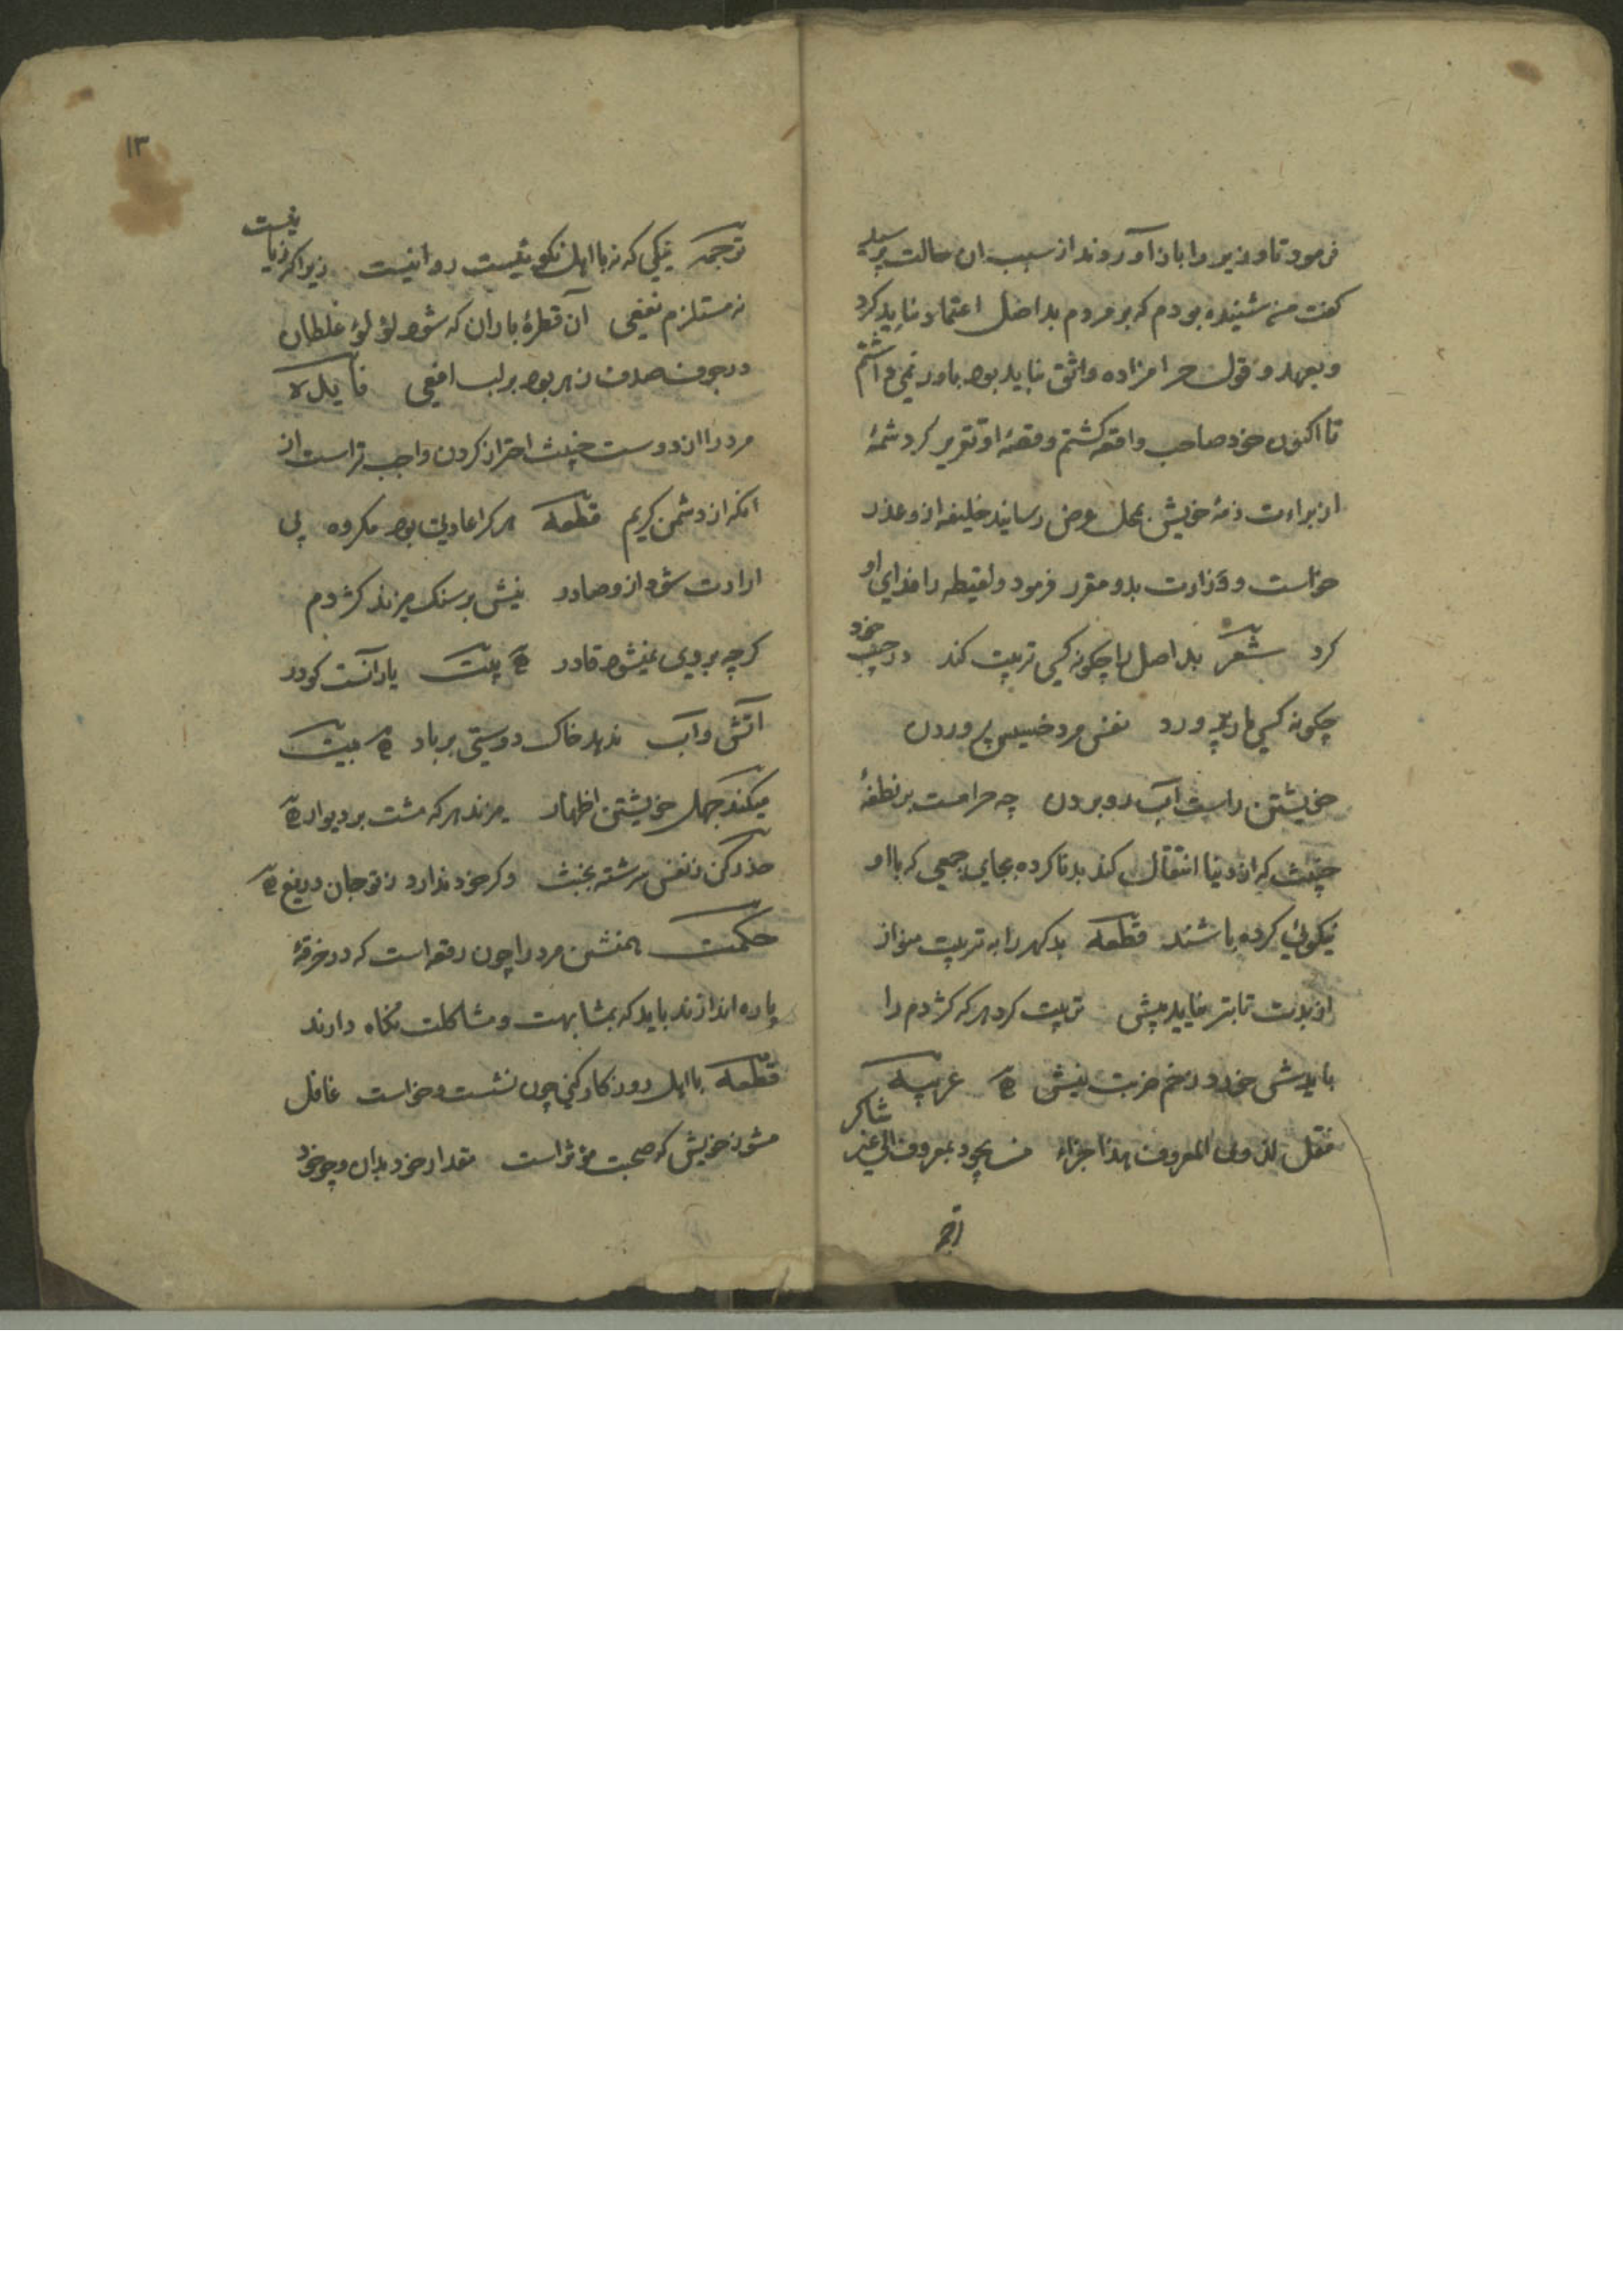 فرمود تا وزیر را باز آوردند از سبب ان حالت پرسید
کفت من شنیده بودم که بر مردم بد اصل اعتماد نباید کرد
و بعهد و قول حرامزاده واثق نباید بود باور نمی داشتم
تا اکنون خود صاحب واقعه کشتم و قصهٔ او تقریر کرد شمهٔ
از براءت ذمهٔ خویش بمحل عرض رسانید خلیفه از و عذر
خواست و وزارت بدو مقرر فرمود و لقیطه را فدای او
کرد شعر بد اصل را چکونه کسی تربیت کند در جیب خود
چکونه کسی مار پرورد نفس مرد خسیس پروردن
خویشتن راست آب رو بردن چه حرامست بر نطفهٔ
خبیث که از دنیا انتقال کند بد ناکرده بجای جمعی که با او
نیکوئی کرده باشند قطعه بد کهر را به تربیت منواز
از بدت تا بتر نیاید پیش تربیت کرد هر که کژدم را
بایدش خورد زخم ضربت نیش عربیه
فقل لذوی المعروف هذا جزاء من یجود بمعروف الی غیر شاکر
ترجمه
١٣
ترجمه نیکی که نه با اهل نکوییست روا نیست زیرا که زیانیست
نه مستلزم نفعی آن قطرهٔ باران که شود لؤلؤ غلطان
در جوف صدف زهر بود بر لب افعی فایده
مرد را از دوست خبیث احتراز کردن واجب تر است از
انکه از دشمن کریم قطعه هر کرا عادت بود مکروه بی
ارادت شود از و صادر نیش بر سنک میزند کژدم
کرچه بر وی نمیشود قادر بیت یار آنست کو در
آتش و آب ندهد خاک دوستی بر باد بیت
میکند جهل خویشتن اظهار میزند هر که مشت بر دیوار
حذر کن ز نفس سرشته بخبث و کر خود ندارد ز تو جان دریغ
حکمت همنشین مرد را چون رقعه است که در خرقهٔ
پاره اندازند باید که بمشابهت و مشاکلت نکاه دارند
قطعه با اهل روزکار کنی چون نشست و خواست غافل
مشو ز خویش که صحبت مؤثر است مقدار خود بدان و چو خود